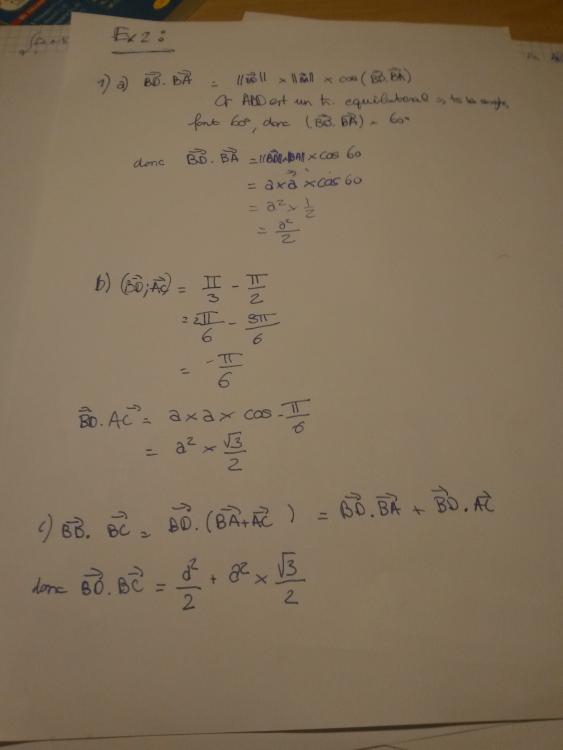 Ex 2 :
1) a) BD⃗ . BA⃗ = ||BD⃗|| × ||BA⃗|| × cos (BD⃗ . BA⃗)
Or ABD est un tr. equilateral
font 60°, donc (BD⃗ . BA⃗) = 60°
donc BD⃗ . BA⃗ = × cos 60
= a × a × cos 60
= a² × 1/2
= a²/2
b) (BD⃗ ; AC⃗) = π/3 - π/2
= 2π/6 - 3π/6
= -π/6
BD⃗ . AC⃗ = a × a × cos -π/6
= a² × √3/2
c) BD⃗ . BC⃗ = BD⃗ . (BA⃗ + AC⃗) = BD⃗ . BA⃗ + BD⃗ . AC⃗
donc BD⃗ . BC⃗ = a²/2 + a² × √3/2